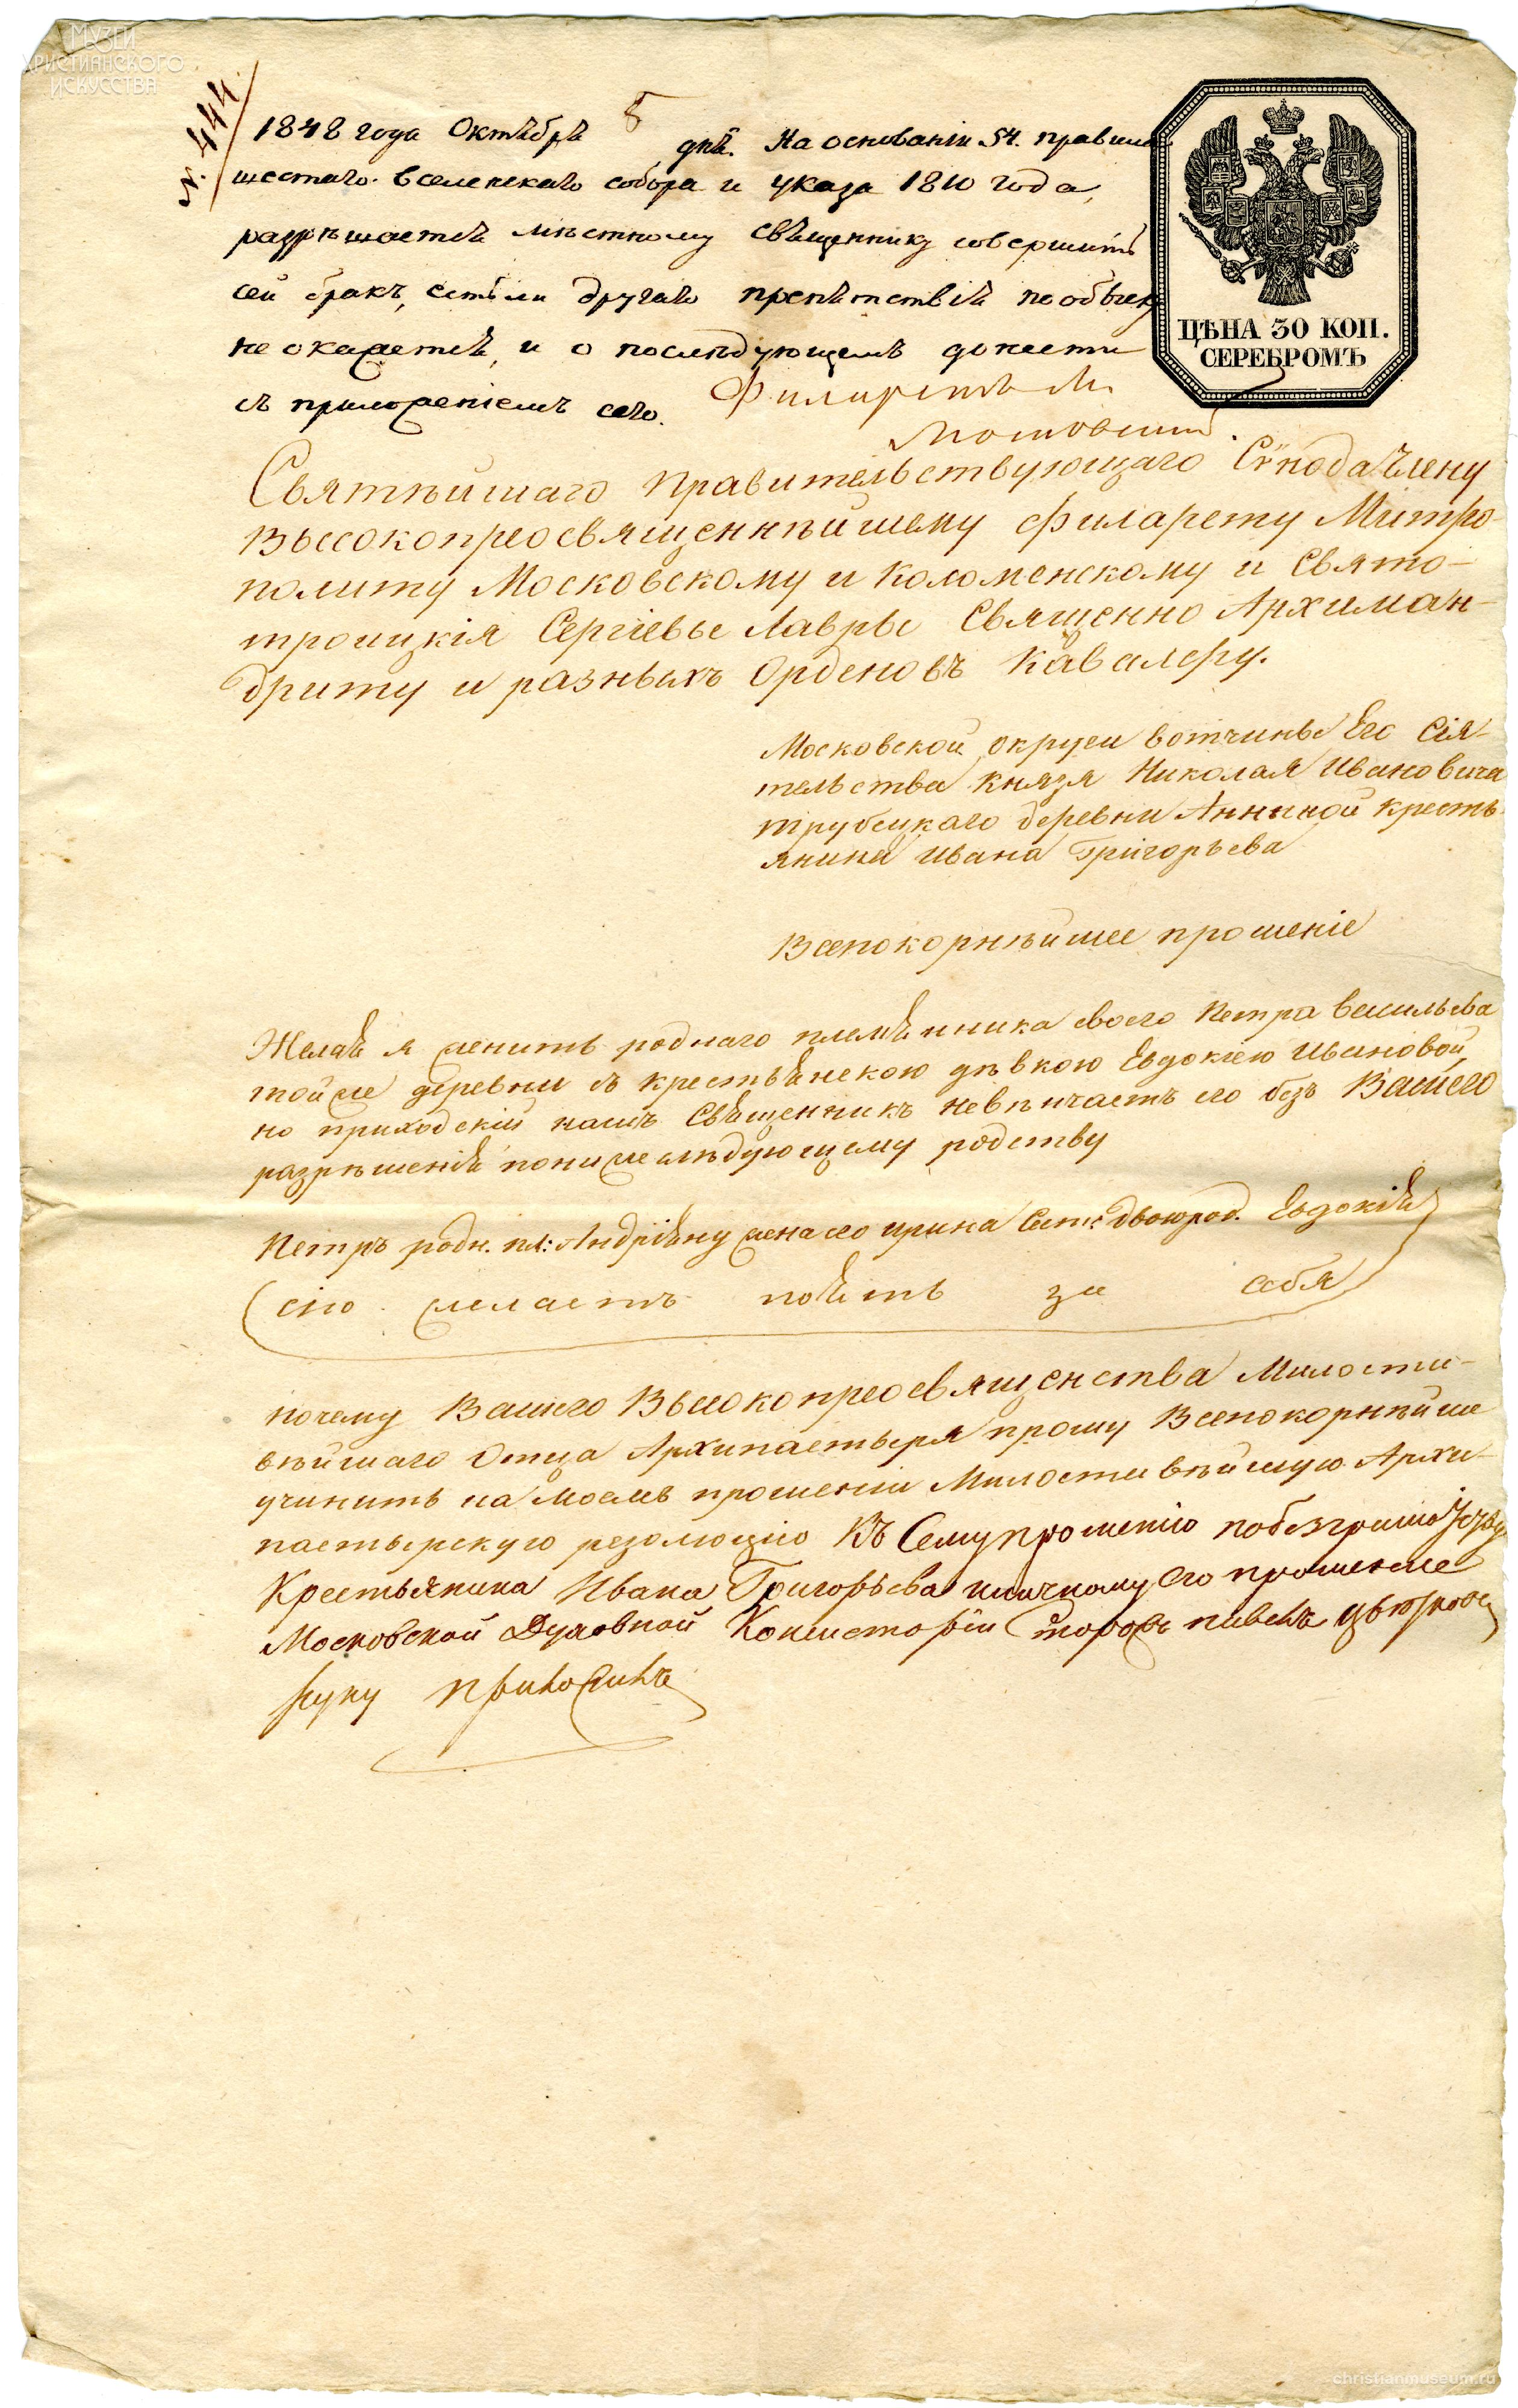 МУЗЕЙ
ХРИСТИАНСКОГО
ИСКУССТВА
N. 444.
1848 года Октября 5 дня. На основаніи 54. правила
шестаго вселенскаго собора и указа 1810 года,
разрѣшается мѣстному священнику совершить
сей бракъ, естьли другаго препятствія по обыску
не окажется, и о послѣдующемъ донести
съ приложеніемъ сего. Филаретъ М.
Московскій.
ЦѢНА 30 КОП.
СЕРЕБРОМЪ
Святѣйшаго Правительствующаго Сѵнода Члену
Высокопреосвященнѣйшему Филарету Митро-
политу Московскому и Коломенскому и Свято-
троицкія Сергіевы Лавры Священно Архиман-
дриту и разныхъ Орденовъ Кавалеру.
Московской округи вотчины Его Сія-
тельства Князя Николая Ивановича
трубецкаго деревни Анниной кресть-
янина Ивана Григорьева
Всепокорнѣйшее прошеніе
Желая я женить роднаго племянника своего Петра Васильева
тойже деревни съ крестьянскою дѣвкою Евдокіею Ивановой,
но приходскій нашъ Священникъ невѣнчаетъ его безъ Вашего
разрѣшенія понижеслѣдующему родству
Петръ родн. пл: Андріяну жена его ирина Сест: двоюрод. Евдокія
сію желаетъ поять за себя
почему Вашего Высокопреосвященства Милости-
вѣйшаго Отца Архипастыря прошу Всепокорнѣйше
учинить на моемъ прошеніи Милостивѣйшую Архи-
пастырскую резолюцію Къ Сему прошенію
Крестьянина Ивана Григорьева иличному его прошенію
Московской Духовной Консисторіи
руку приложилъ
christianmuseum.ru